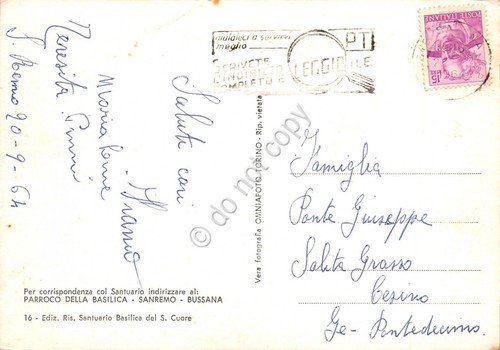 S. Remo 20-9-64
Saluti cari
Franco
Maria Pina
Teresita
aiutateci a servirvi
meglio
PT
SCRIVETE
INDIRIZZO
COMPLETO E
LEGGIBILE
POSTE ITALIANE
Famiglia
Ponte Giuseppe
Salita Grasso
Cesino
Ge-Pontedecimo
Vera fotografia OMNIAFOTO TORINO - Rip. vietata
Per corrispondenza col Santuario indirizzare al:
PARROCO DELLA BASILICA - SANREMO - BUSSANA
16 - Ediz. Ris. Santuario Basilica del S. Cuore
@ do not copy